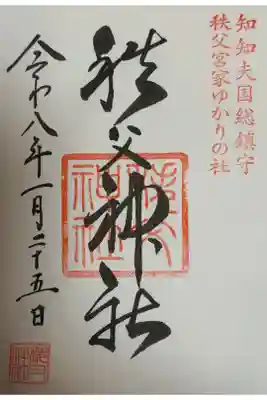 知知夫国総鎮守
秩父宮家ゆかりの社
秩父神社
秩父
神社
令和八年一月二十五日